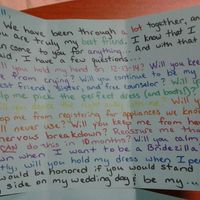 We have been through a lot together, and
you are truly my best friend. I know that I
can come to you for anything... And with that
said, I have a few questions...
Will you hold my hand on 12-13-14? Will you keep
me from crying? Will you continue to be my
best friend, sister, and free counselor? Will
help me pick the perfect dress (and boots!)?
Will you
me from registering for appliances we know
I'll never use? Will you keep me from having
nervous breakdown? Reassure me that
CAN do this in 10 months? Will you calm
down when I want to be a Bridezilla
Will you hold my dress when I pee
would be honored if you would
side on my wedding day & be my...